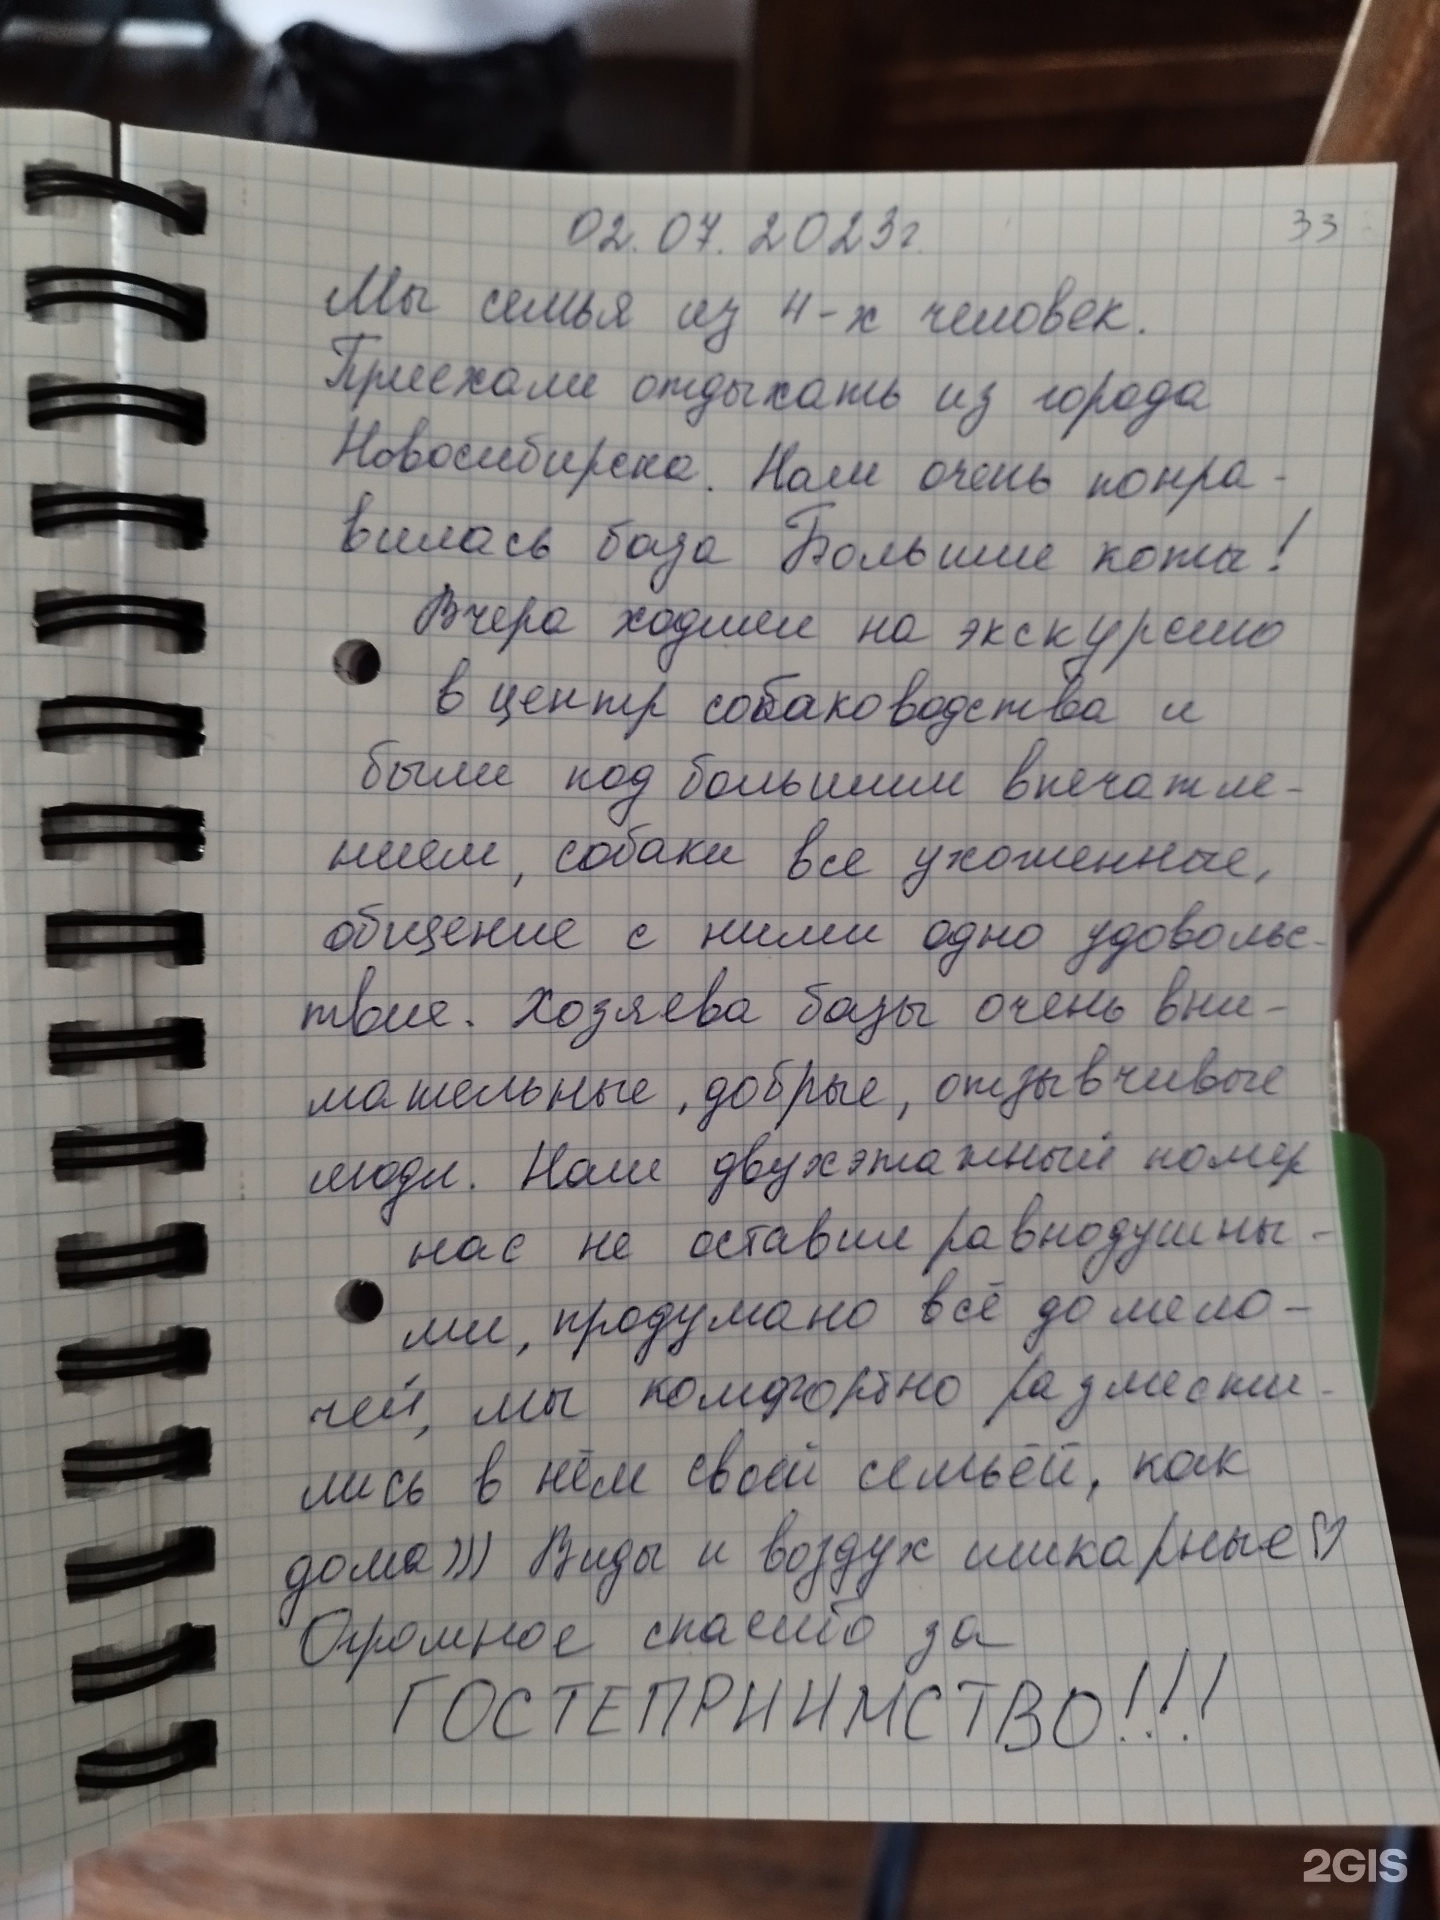 02.07.2023г.
33
Мы семья из 4-х человек.
Приехали отдыхать из города
Новосибирска. Нам очень понра-
вилась база Большие коты!
Вчера ходили на экскурсию
в центр собаководства и
были под большим впечатле-
нием, собаки все ухоженные,
общение с ними одно удовольс-
твие. Хозяева базы очень вни-
мательные, добрые, отзывчивые
люди. Наш двухэтажный номер
нас не оставил равнодушны-
ми, продумано всё до мело-
чей, мы комфортно размести-
лись в нём своей семьёй, как
дома))) Виды и воздух шикарные♡
Огромное спасибо за
ГОСТЕПРИИМСТВО!!!
2GIS